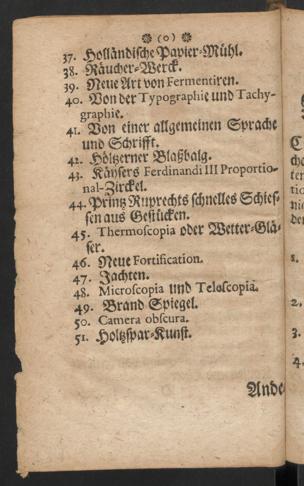 ❁ (0) ❁
37. Holländische Papier-Mühl.
38. Räucher-Werck.
39. Neue Art von Fermentiren.
40. Von der Typographie und Tachy-
graphie.
41. Von einer allgemeinen Sprache
und Schrifft.
42. Höltzerner Blaßbalg.
43. Käysers Ferdinandi III Proportio-
nal-Zirckel.
44. Printz Ruprechts schnelles Schies-
sen aus Gestücken.
45. Thermoscopia oder Wetter-Glä-
ser.
46. Neue Fortification.
47. Jachten.
48. Microscopia und Telescopia.
49. Brand Spiegel.
50. Camera obscura.
51. Holtzspar-Kunst.
Ande
1.
2.
3.
4.